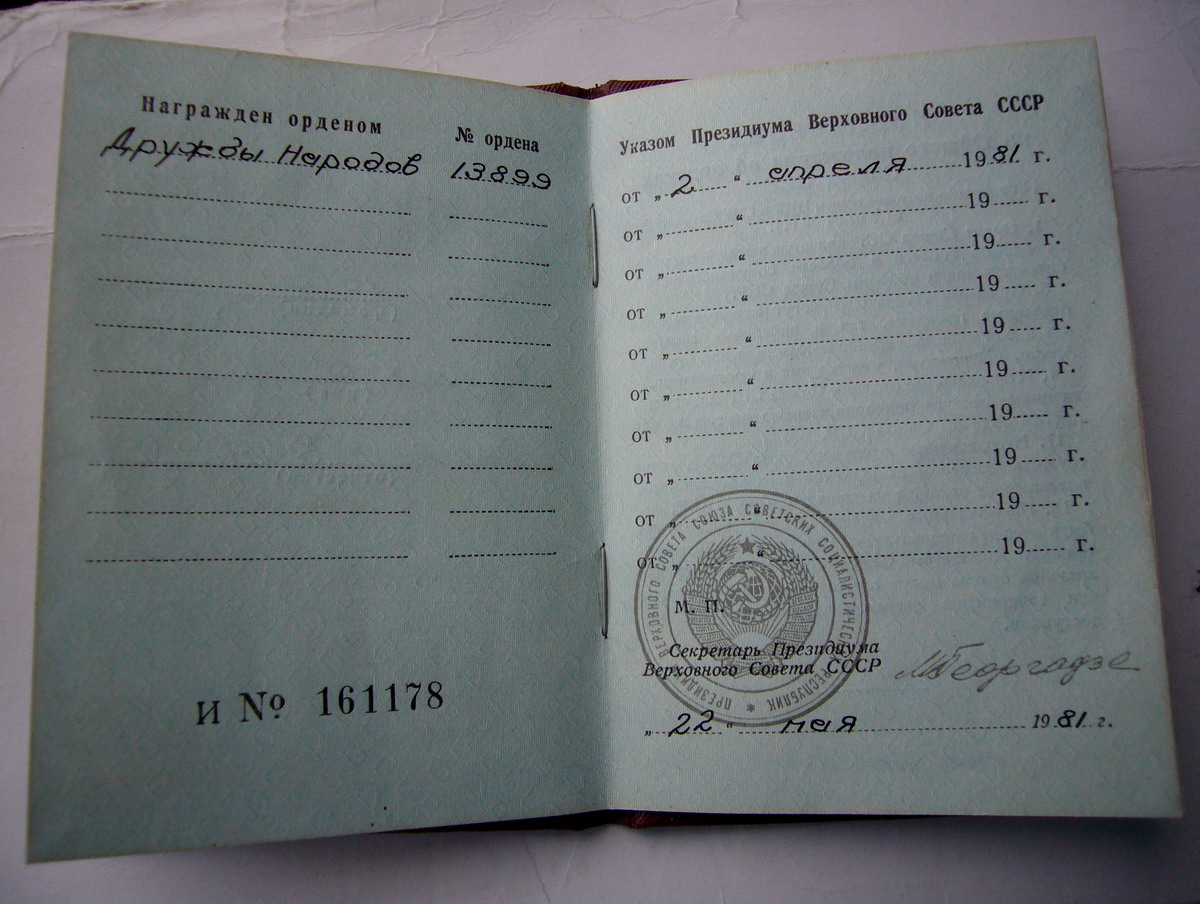 Награжден орденом
№ ордена
Дружбы Народов
13899
И № 161178
Указом Президиума Верховного Совета СССР
от „ 2 “ апреля 1981 г.
от „ “ 19 г.
от „ “ 19 г.
от „ “ 19 г.
от „ “ 19 г.
от „ “ 19 г.
от „ “ 19 г.
от „ “ 19 г.
от „ “ 19 г.
от „ “ 19 г.
М. П.
ПРЕЗИДИУМ ВЕРХОВНОГО СОВЕТА СОЮЗА СОВЕТСКИХ СОЦИАЛИСТИЧЕСКИХ РЕСПУБЛИК *
Секретарь Президиума
Верховного Совета СССР
МГеоргадзе
„ 22 “ мая 1981 г.